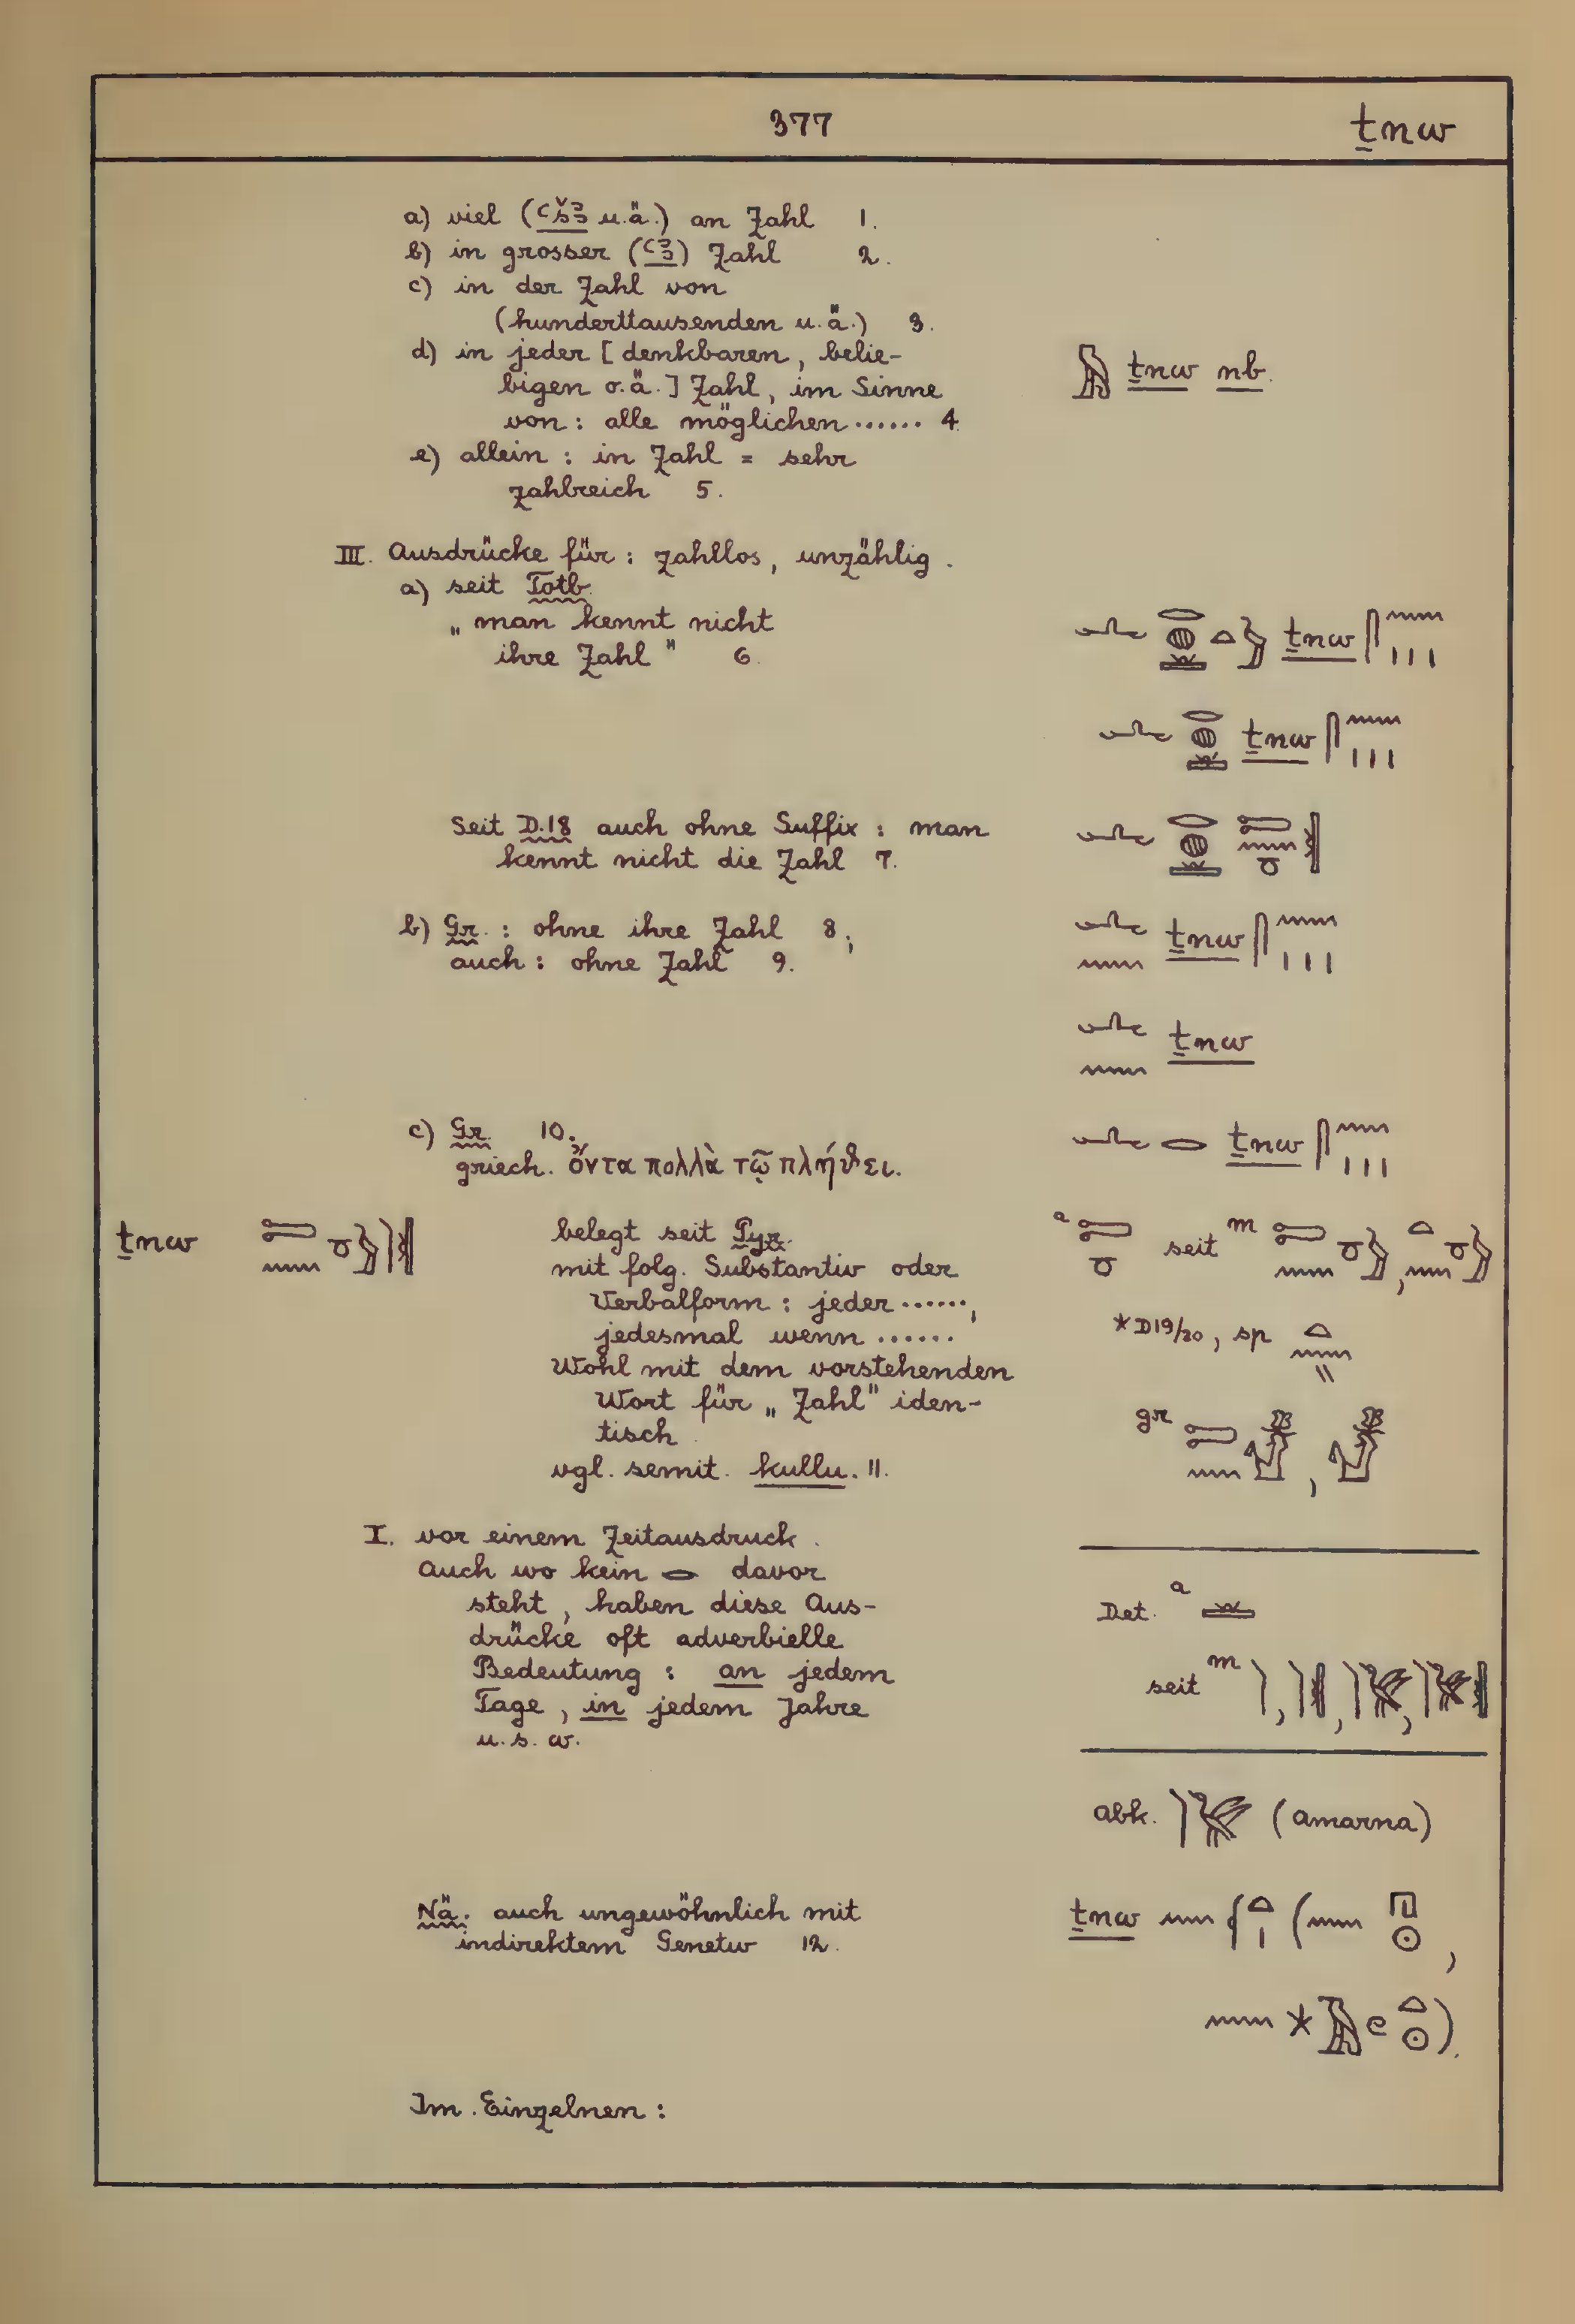 377 ṯnw
a) viel (ꜥšꜣ u.ä.) an Zahl 1.
b) in grosser (ꜥꜣ) Zahl 2.
c) in der Zahl von
(hunderttausenden u.ä.) 3.
d) in jeder [denkbaren, belie-
bigen o.ä.] Zahl, im Sinne ṯnw nb.
von: alle möglichen ...... 4.
e) allein: in Zahl = sehr
zahlreich 5.
III. Ausdrücke für: zahllos, unzählig.
a) seit Totb.
„man kennt nicht
ihre Zahl" 6. ṯnw
ṯnw
Seit D.18 auch ohne Suffix: man
kennt nicht die Zahl 7.
b) Gr.: ohne ihre Zahl 8; ṯnw
auch: ohne Zahl 9.
ṯnw
c) Gr. 10. ṯnw
griech. ὄντα πολλὰ τῷ πλήθει.
ṯnw belegt seit Pyr. a seit m
mit folg. Substantiv oder
Verbalform: jeder ......,
jedesmal wenn ...... *D19/20, sp
Wohl mit dem vorstehenden
Wort für „Zahl" iden- gr
tisch.
vgl. semit. kullu. 11.
I. vor einem Zeitausdruck.
Auch wo kein davor
steht, haben diese Aus- Det. a
drücke oft adverbielle
Bedeutung: an jedem seit m
Tage, in jedem Jahre
u.s.w.
abk. (Amarna)
Nä. auch ungewöhnlich mit ṯnw
indirektem Genetiv 12.
Im Einzelnen: